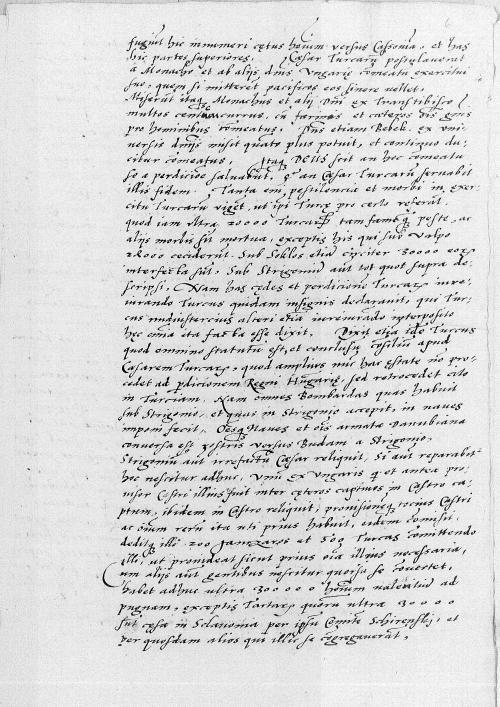 fugiũt hic innumeri cętus hoĩum versus Cassouia, et has
hic partes superiores. Cæsar Turcarũ postulauerat
a Monacho et ab alijs dnis Vngarię comeatũ exercitui
suo, quem si mitteret pacificos eos sinere vellet.
Miserũt itaq Monachus et alij Dñi ex Transtibisco
multos currus, cũ farinis et cæteros
pro hominibus comeatus. Dñs etiam Bebek ex vni-
uersis dnijs misit quãto plus potuit, et continuo du-
citur comeatus. Itaq DEUS scit an hoc comeatu
se a perdicioe saluabũt, et an Cæsar Turcarũ seruabit
illis fidem. Tanta eni pestilencia et morbi in exer-
citu Turcarũ viget, ut ipi Turcę pro certo referũt
quod iam vltra 20000 Turcarũ tam fame q peste, ac
alijs morbis sit mortua, exceptis his qui sub Valpo
28000 ceciderũt. Sub Soklos etiã circiter 30000 eorũ
interfecta sũt. Sub Strigoniũ aũt tot quot supra de-
scripsi. Nam has cędes et perdicione Turcarũ inre-
iurando Turcus quidam insignis declarauit, qui Tur-
cus alteri etiã iureiurãdo interposito
hęc omĩa ita facta esse dixit. Dixit etiã idẽ Turcus
quod omnino statutũ est, et conclusũ cõsiliũ apud
Cæsarem Turcarũ, quod amplius in hac Estate nõ pro-
cedet ad pdicionem Regni Hũgarię, sed retrocedet cito
in Turciam. Nam omnes Bombardas quas habuit
sub Strigonio, et quas in Strigonio accepit, in naues
imponi fecit. Naues et oĩs armata Danubiana
conuersa est versus Budam a Strigonio.
Strigoniũ aũt Cæsar reliquit, Si aũt reparabit
hoc nescitur adhuc. Vnũ ex Vngaris q et antea pro-
uisor Castri illius fuit inter cęteros captiuos in Castro ca-
ptum, ibidem in Castro reliquit, prouisionẽq tocius Castri
ac oĩum rerũ ita uti prius habuit, eidem comisit,
deditq illi 200 Janizaros et 500 Turcas comittendo
illi, ut prouideat sicut prius oĩa illius necessaria,
Cum alijs aũt gentibus nescitur quorsũ se couertet,
habet adhuc ultra 300000 hoĩum valentiũ ad
pugnam, exceptis Tartaris quorũ ultra 30000
sũt cęsa in Sclauonia per ipsũ Comitẽ Schirenskj, et
per quosdam alios qui illic se cõgregauerãt,